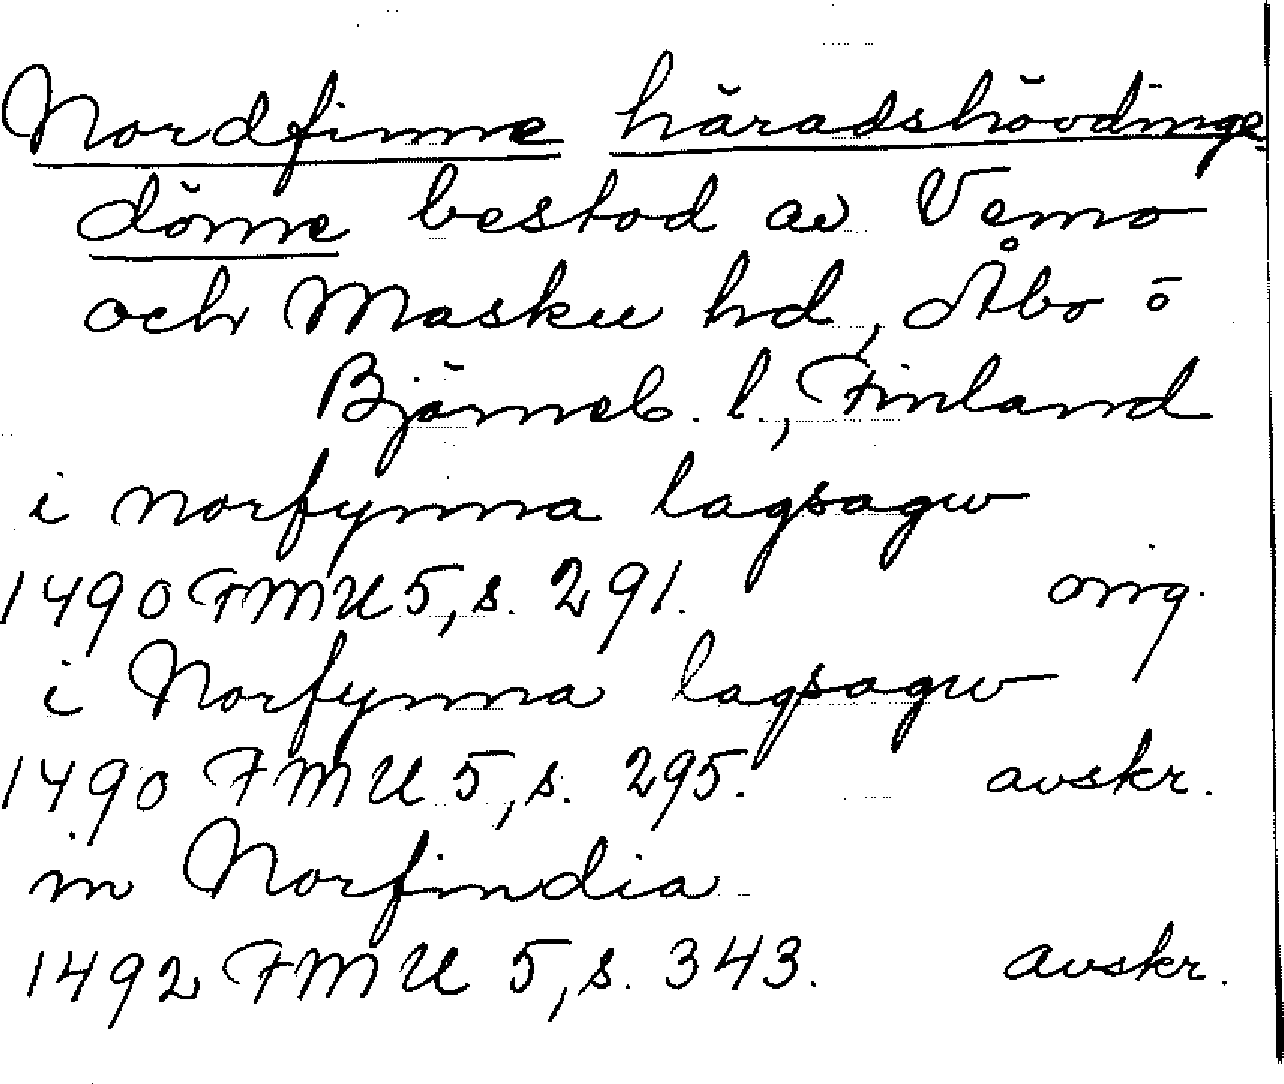 Nordfinne häradshövdinge
döme bestod av Vemo
och Masku hd, Åbo o
Björneb. l., Finland
i norfynna lagsagw
1490 FMU 5, s. 291. orig.
i Norfynna lagsagw
1490 FMU 5, s. 295. avskr.
in Norfindia
1492 FMU 5, s. 343. avskr.